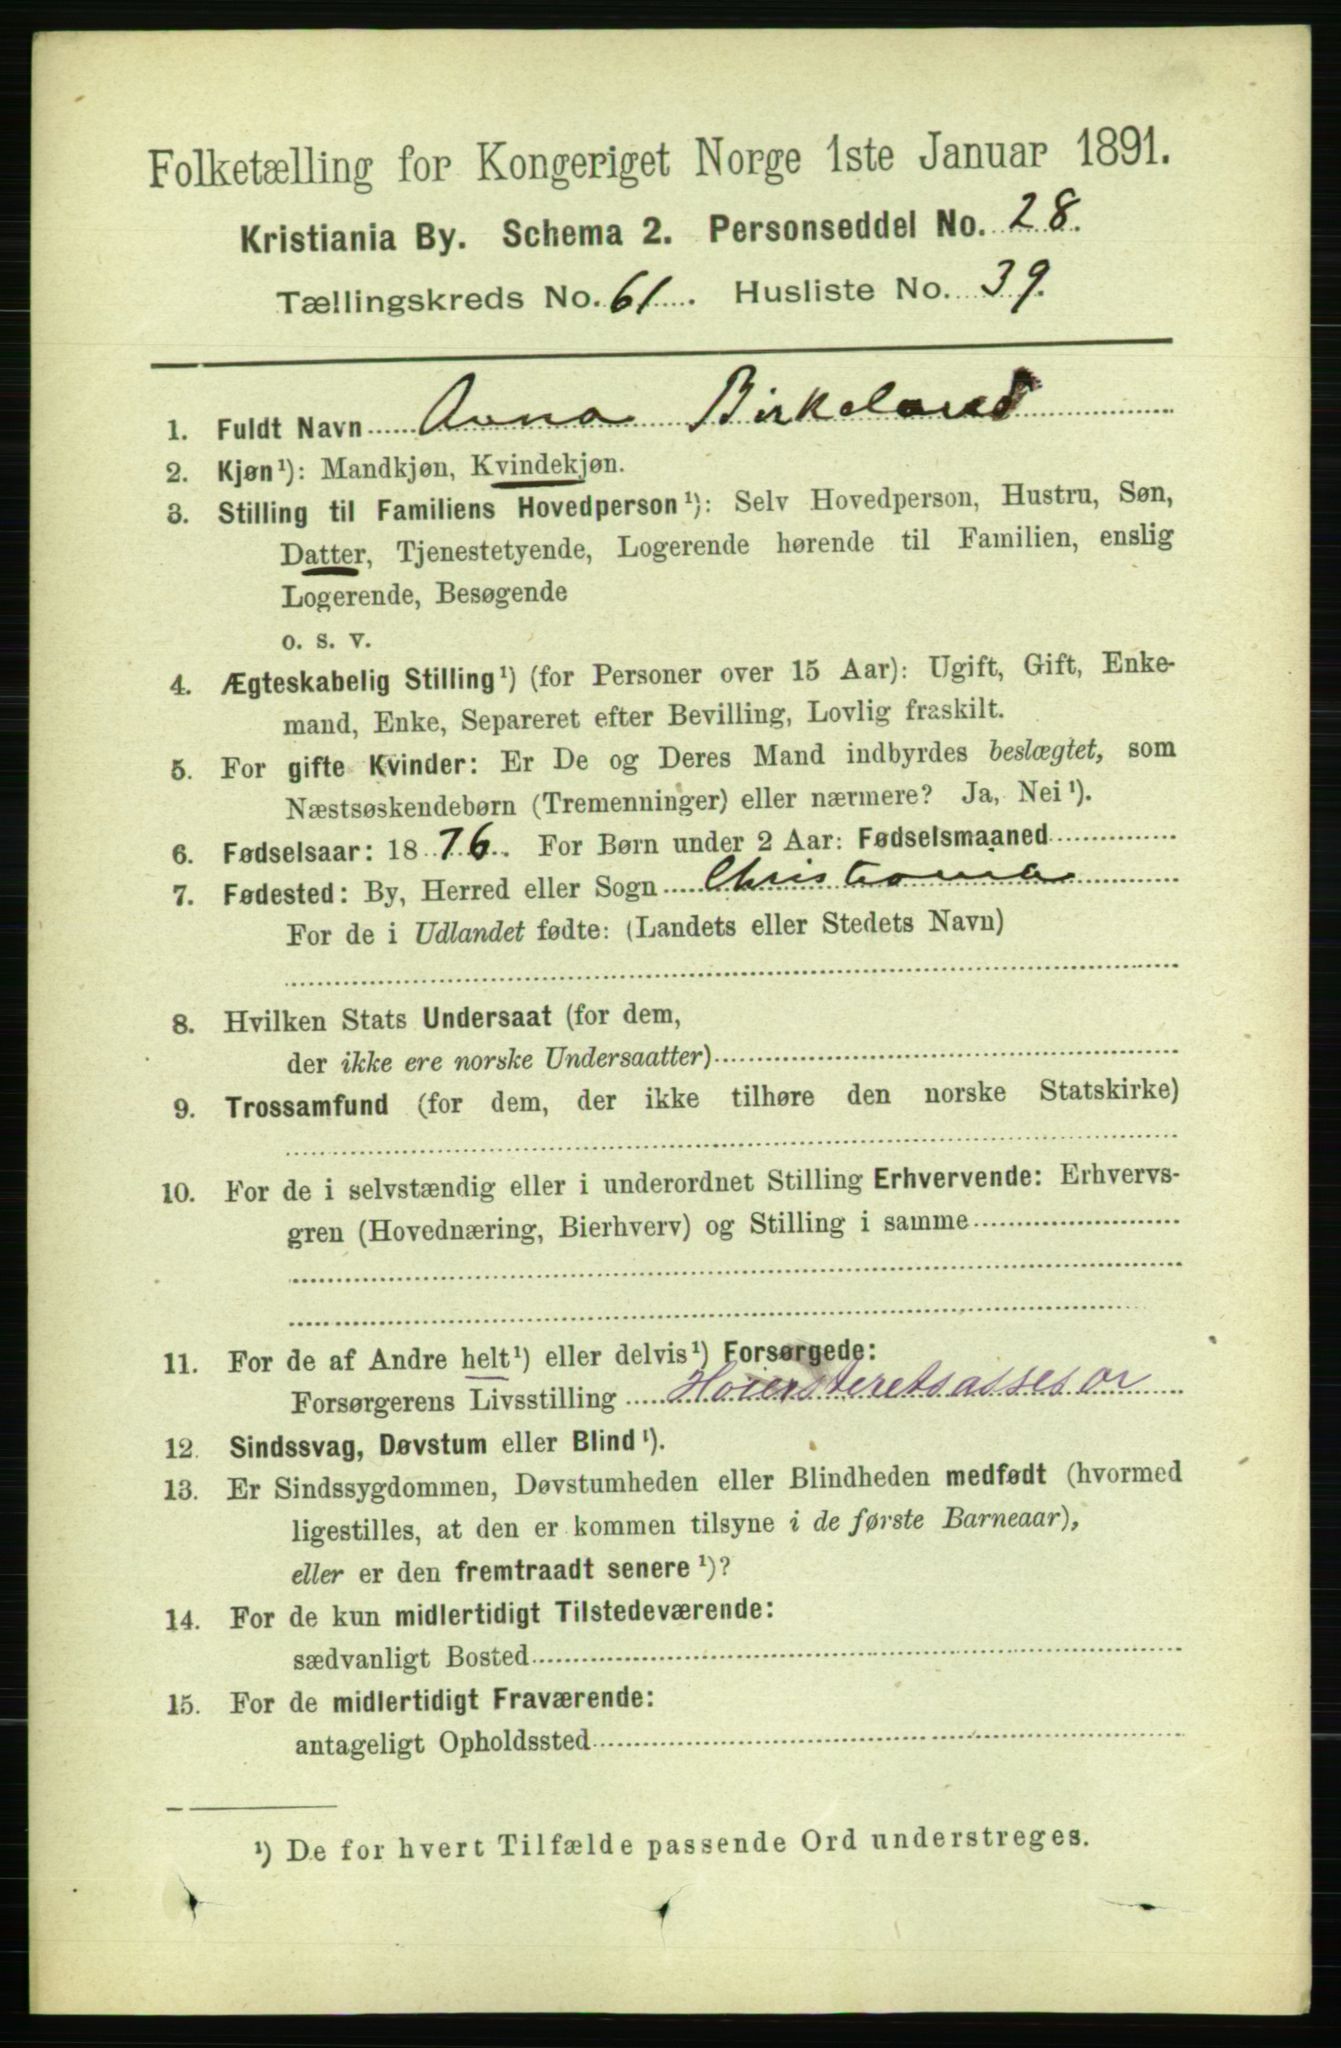 Folketælling for Kongeriget Norge 1ste Januar 1891.
Kristiania By. Schema 2. Personseddel No. 28.
Tællingskreds No. 61. Husliste No. 39.
1. Fuldt Navn Anna Birkeland
2. Kjøn¹): Mandkjøn, Kvindekjøn.
3. Stilling til Familiens Hovedperson¹): Selv Hovedperson, Hustru, Søn,
Datter, Tjenestetyende, Logerende hørende til Familien, enslig
Logerende, Besøgende
o. s. v.
4. Ægteskabelig Stilling¹) (for Personer over 15 Aar): Ugift, Gift, Enke-
mand, Enke, Separeret efter Bevilling, Lovlig fraskilt.
5. For gifte Kvinder: Er De og Deres Mand indbyrdes beslægtet, som
Næstsøskendebørn (Tremenninger) eller nærmere? Ja, Nei¹).
6. Fødselsaar: 1876. For Børn under 2 Aar: Fødselsmaaned
7. Fødested: By, Herred eller Sogn Christiania
For de i Udlandet fødte: (Landets eller Stedets Navn)
8. Hvilken Stats Undersaat (for dem,
der ikke ere norske Undersaatter)
9. Trossamfund (for dem, der ikke tilhøre den norske Statskirke)
10. For de i selvstændig eller i underordnet Stilling Erhvervende: Erhvervs-
gren (Hovednæring, Bierhverv) og Stilling i samme
11. For de af Andre helt¹) eller delvis¹) Forsørgede:
Forsørgerens Livsstilling Høiersteretsassesor
12. Sindssvag, Døvstum eller Blind¹).
13. Er Sindssygdommen, Døvstumheden eller Blindheden medfødt (hvormed
ligestilles, at den er kommen tilsyne i de første Barneaar),
eller er den fremtraadt senere¹)?
14. For de kun midlertidigt Tilstedeværende:
sædvanligt Bosted
15. For de midlertidigt Fraværende:
antageligt Opholdssted
¹) De for hvert Tilfælde passende Ord understreges.